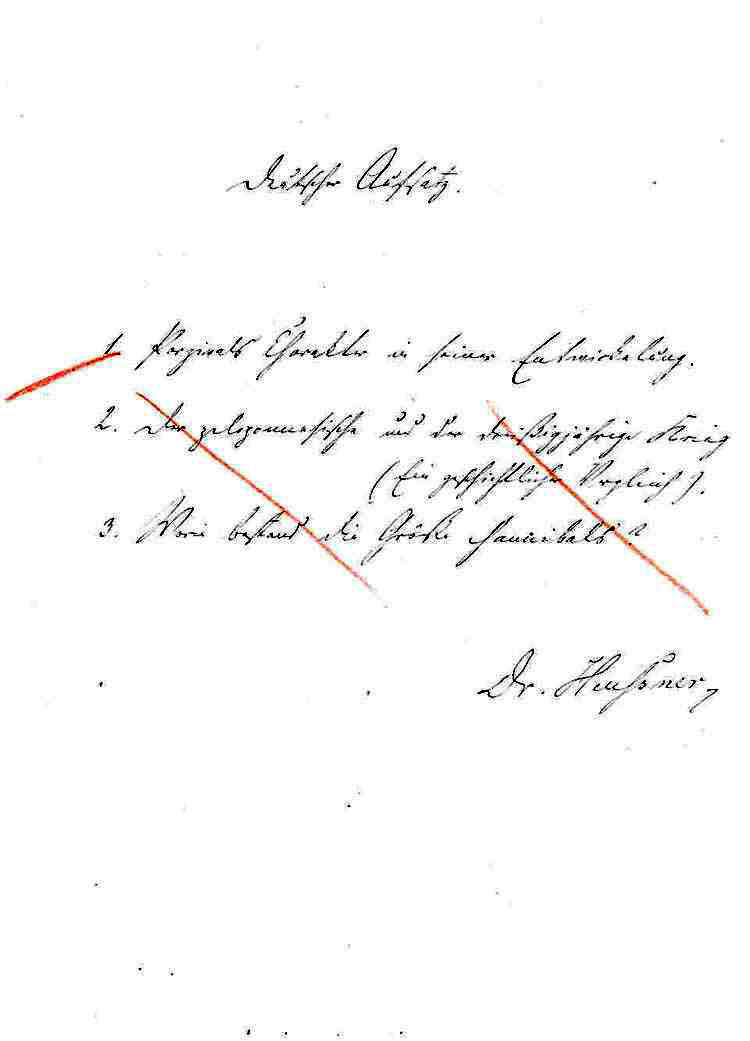 Deutscher Aufsatz.
1. Parzivals Charakter in seiner Entwickelung.
2. Der peloponnesische und der dreißigjährige Krieg
(Ein geschichtlicher Vergleich).
3. Worin bestand die Größe Hannibals?
Dr. Heußner